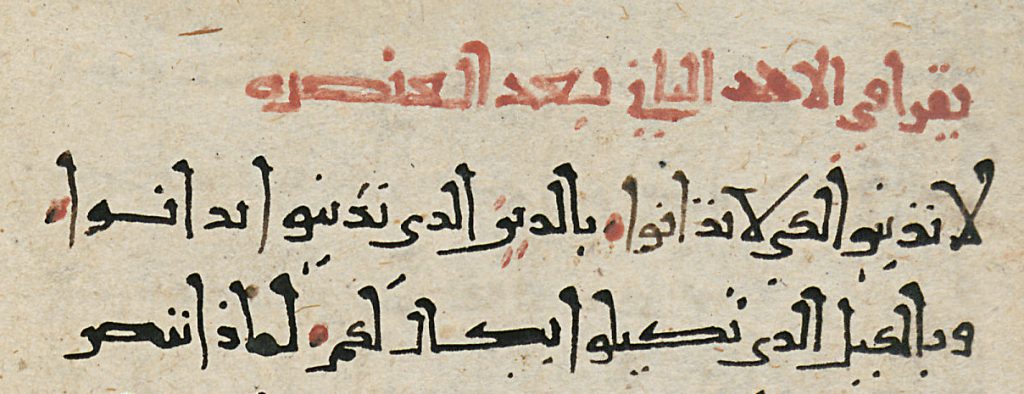 يقرا في الاحد الثاني بعد العنصره
لا تدينوا لكي لا تدانوا. بالدين الذي تدينوا به تدانوا.
وبالكيل الذي تكيلوا يكال لكم. لماذا تنتصر